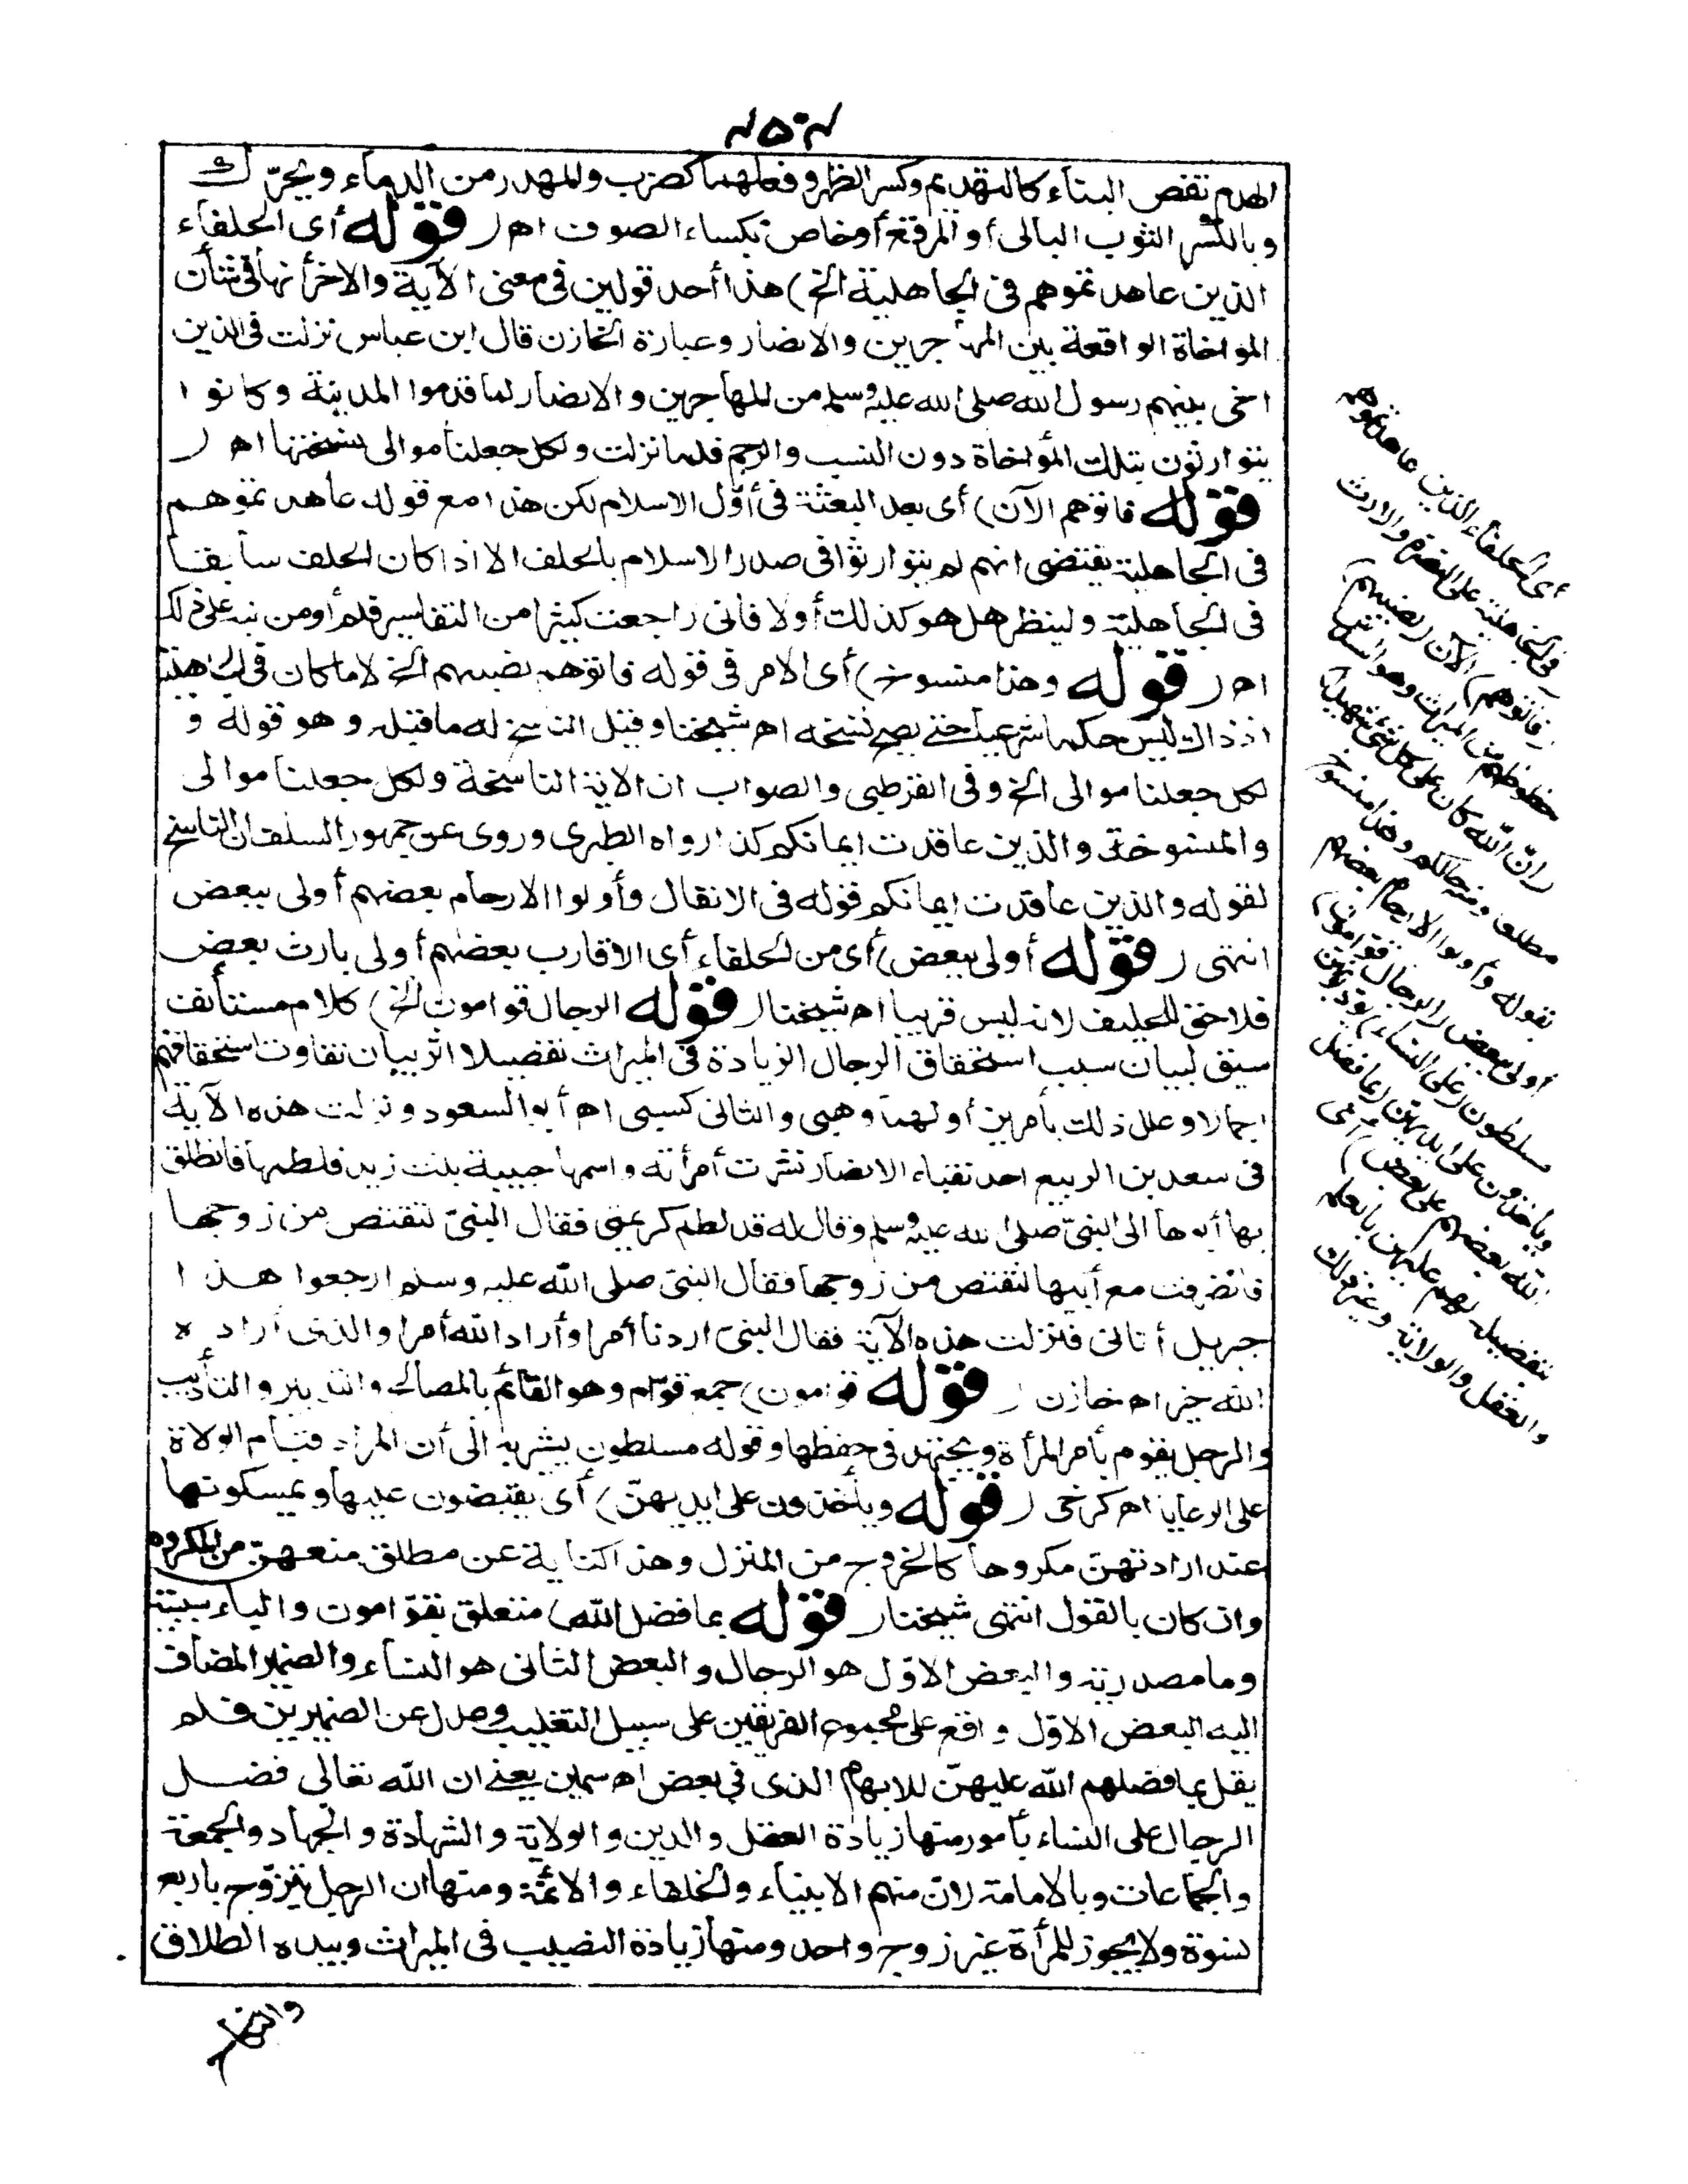 الهدم نقض البناء كالتهديم وكسر الظهر وفعلهما كضرب والمهدر من الدماء ويحرّك
وبالكسر الثوب البالى أو المرقع أو خاص بكساء الصوف اه ( قوله أى الحلفاء
الذين عاهدتموهم فى الجاهلية الخ) هذا أحد قولين فى معنى الآية والاخر أنها فى شأن
المواخاة الواقعة بين المهاجرين والانصار وعبارة الخازن قال ابن عباس نزلت فى الذين
اخى بينهم رسول الله صلى الله عليه وسلم من المهاجرين والانصار لما قدموا المدينة وكانوا
يتوارثون بتلك المؤاخاة دون النسب والرحم فلما نزلت ولكل جعلنا موالى نسختها اه (
قوله فاتوهم الآن) أى بعد البعثة فى أوّل الاسلام لكن هذا مع قوله عاهدتموهم
فى الجاهلية يقتضى انهم لم يتوارثوا فى صدر الاسلام بالحلف الا اذا كان الحلف سابقا
فى الجاهلية ولينظر هل هو كذلك أو لا فانى راجعت كثيرا من التفاسير فلم أر من نبه على ذلك
اه ( قوله وهذا منسوخ) أى الامر فى قوله فاتوهم نصيبهم الخ لا ما كان فى الجاهلية
اذ ذاك ليس حكما شرعيا حتى يصح نسخه اه شيخنا وقيل الناسخ له ما قبله وهو قوله و
لكل جعلنا موالى الخ وفى القرطبى والصواب ان الاية الناسخة ولكل جعلنا موالى
والمنسوخة والذين عاقدت ايمانكم كذا رواه الطبرى وروى عن جمهور السلف ان الناسخ
لقوله والذين عاقدت ايمانكم قوله فى الانفال وأولوا الارحام بعضهم أولى ببعض
انتهى ( قوله أولى ببعض) أى من الحلفاء أى الاقارب بعضهم أولى بارث بعض
فلا حق للحليف لانه ليس قريبا اه شيخنا ( قوله الرجال قوامون الخ) كلام مستأنف
سيق لبيان سبب استحقاق الرجال الزيادة فى الميراث تفصيلا اثر بيان تفاوت استحقاقهم
اجمالا وعلل ذلك بأمرين أولهما وهبى والثانى كسبى اه أبو السعود ونزلت هذه الآية
فى سعد بن الربيع احد نقباء الانصار نشزت أمرأته واسمها حبيبة بنت زيد فلطمها فانطلق
بها أبوها الى النبىّ صلى الله عليه وسلم وقال له قد لطم كريمتى فقال النبىّ لتقتص من زوجها
فانصرفت مع أبيها لتقتص من زوجها فقال النبى صلى الله عليه وسلم ارجعوا هذا
جبريل أتانى فنزلت هذه الآية فقال النبىّ اردنا أمرا وأراد الله أمرا والذى أراده
الله خير اه خازن ( قوله قوامون) جمع قوّام وهو القائم بالمصالح والتدبير والتأديب
والرجل يقوم بأمر المرأة ويجتهد فى حفظها وقوله مسلطون يشير به الى أن المراد قيام الولاة
على الرعايا اه كرخى ( قوله ويأخذون على ايديهنّ) أى يقبضون عليها ويمسكونها
عند ارادتهنّ مكروها كالخروج من المنزل وهذا كناية عن مطلق منعهنّ من المكروه
وان كان بالقول انتهى شيخنا ( قوله بما فضل الله) متعلق بقوّامون والباء سببية
وما مصدرية والبعض الاوّل هو الرجال والبعض الثانى هو النساء والضمير المضاف
اليه البعض الاوّل واقع على مجموع الفريقين على سبيل التغليب وعدل عن الضميرين فلم
يقل بما فضلهم الله عليهنّ للابهام الذى فى بعض اه سمين يعنى ان الله تعالى فضل
الرجال على النساء بأمور منها زيادة العقل والدين والولاية والشهادة والجهاد والجمعة
والجماعات وبالامامة لان منهم الانبياء والخلفاء والائمة ومنها ان الرجل يتزوّج باربع
نسوة ولا يجوز للمرأة غير زوج واحد ومنها زيادة النصيب فى الميراث وبيده الطلاق
أى الحلفاء الذين عاهدتموهم
فى الجاهلية على النصرة والارث
(فاتوهم) الآن (نصيبهم)
حظوظهم من الميراث وهو السدس
(ان الله كان على كل شئ شهيدا)
مطلعا ومنه حالكم وهذا منسوخ
بقوله وأولوا الارحام بعضهم
أولى ببعض (الرجال قوّامون)
مسلطون (على النساء) يؤدبونهن
ويأخذون على ايديهن (بما فضل
الله بعضهم على بعض) أى
بتفضيله لهم عليهن بالعلم
والعقل والولاية وغير ذلك